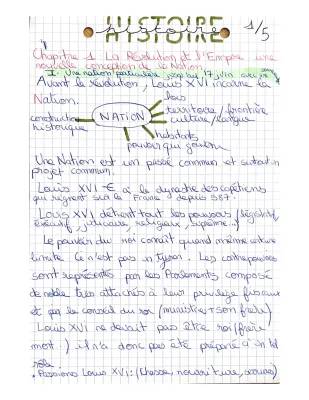 HISTOIRE
histoire
1/5
Chapitre 1 La Révolution et l'Empire une
nouvelle conception de la Nation
I. Une nation particulière jusqu'au 17 juin
Avant la révolution, Louis XVI incarne la
Nation.
lois
territoire / frontière
culture / langue
construction
historique
NATION
habitants
pouvoir qui gouverne
Une Nation est un passé commun et surtout un
projet commun.
Louis XVI € à la dynastie des capétiens
qui règnent sur la France depuis 987.
Louis XVI détient tout les pouvoirs (législatif,
exécutif, judiciaire, religieux, suprême...)
Le pouvoir du roi connaît quand même
limite. Ce n'est pas un tyran. Les contrepouvoirs
sont représentés par les Parlements composé
de noble très attachés à leur privilège fiscaux
et par le conseil du roi (ministres + son frère)
Louis XVI ne devait pas être roi (frère
mort) il n'a donc pas été préparé à un tel
rôle.
• Passions Louis XVI : (chasse, nourriture,